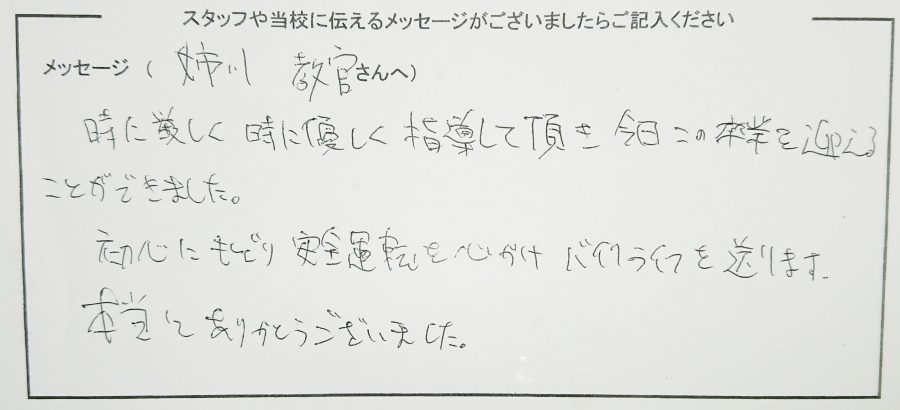 スタッフや当校に伝えるメッセージがございましたらご記入ください
メッセージ ( 姉川 教官さんへ)
時に厳しく 時に優しく 指導して頂き 今日この卒業を迎える
ことができました。
初心にもどり 安全運転を心がけ バイクライフを送ります。
本当にありがとうございました。